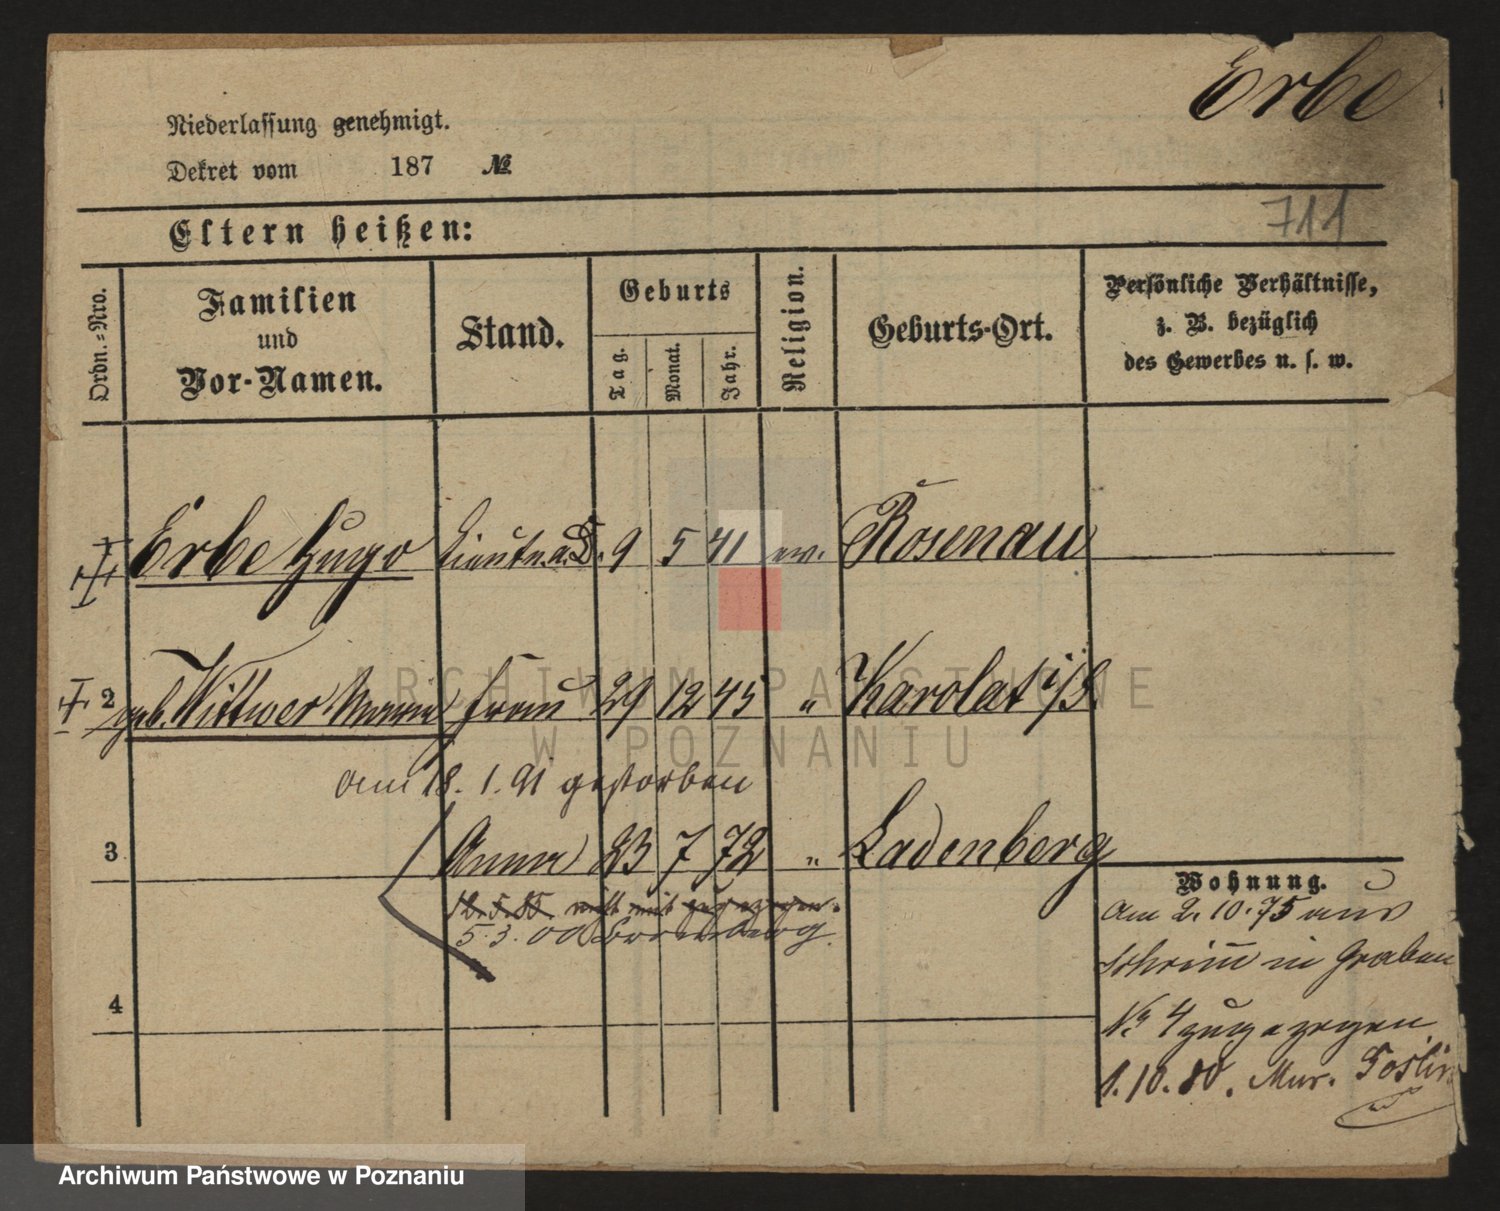 Erbe
Niederlassung genehmigt.
Dekret vom 187 №
711
Eltern heißen:
Ordn.-Nro.
Familien
und
Vor-Namen.
Stand.
Geburts
Tag.
Monat.
Jahr.
Religion.
Geburts-Ort.
Persönliche Verhältnisse,
z. B. bezüglich
des Gewerbes u. s. w.
Erbe Hugo 9 5 41 ev. Rosenau
2 geb. Wittwer Maria Frau 29 12 45 " Karolat i/S.
am 18. 1. 91 gestorben
3 Anna 23 7 72 " Ladenberg
12. 5. 85. nicht mit zugezogen.
5. 3. 00 Bromberg
4
Wohnung.
am 2. 10. 75 aus
Schrimm in Graben
No 4 zugezogen
1. 10. 80. Mur.
ARCHIWUM PAŃSTWOWE
W POZNANIU
Archiwum Państwowe w Poznaniu